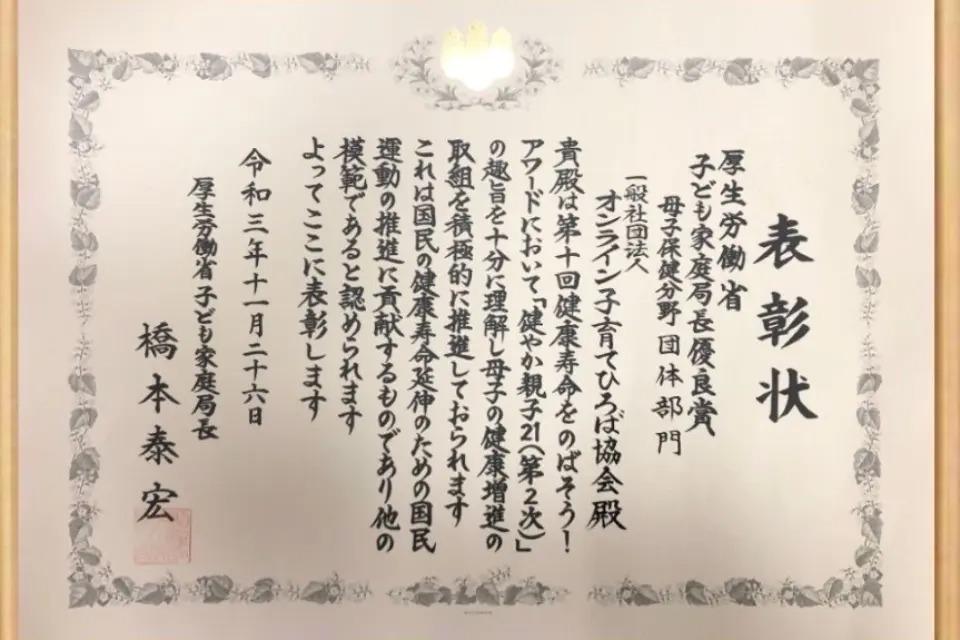 表彰状
厚生労働省
子ども家庭局長優良賞
母子保健分野 団体部門
一般社団法人
オンライン子育てひろば協会殿
貴殿は第十回健康寿命をのばそう！
アワードにおいて「健やか親子21(第2次)」
の趣旨を十分に理解し母子の健康増進の
取組を積極的に推進しておられます
これは国民の健康寿命延伸のための国民
運動の推進に貢献するものであり他の
模範であると認められます
よってここに表彰します
令和三年十一月二十六日
厚生労働省子ども家庭局長
橋本泰宏